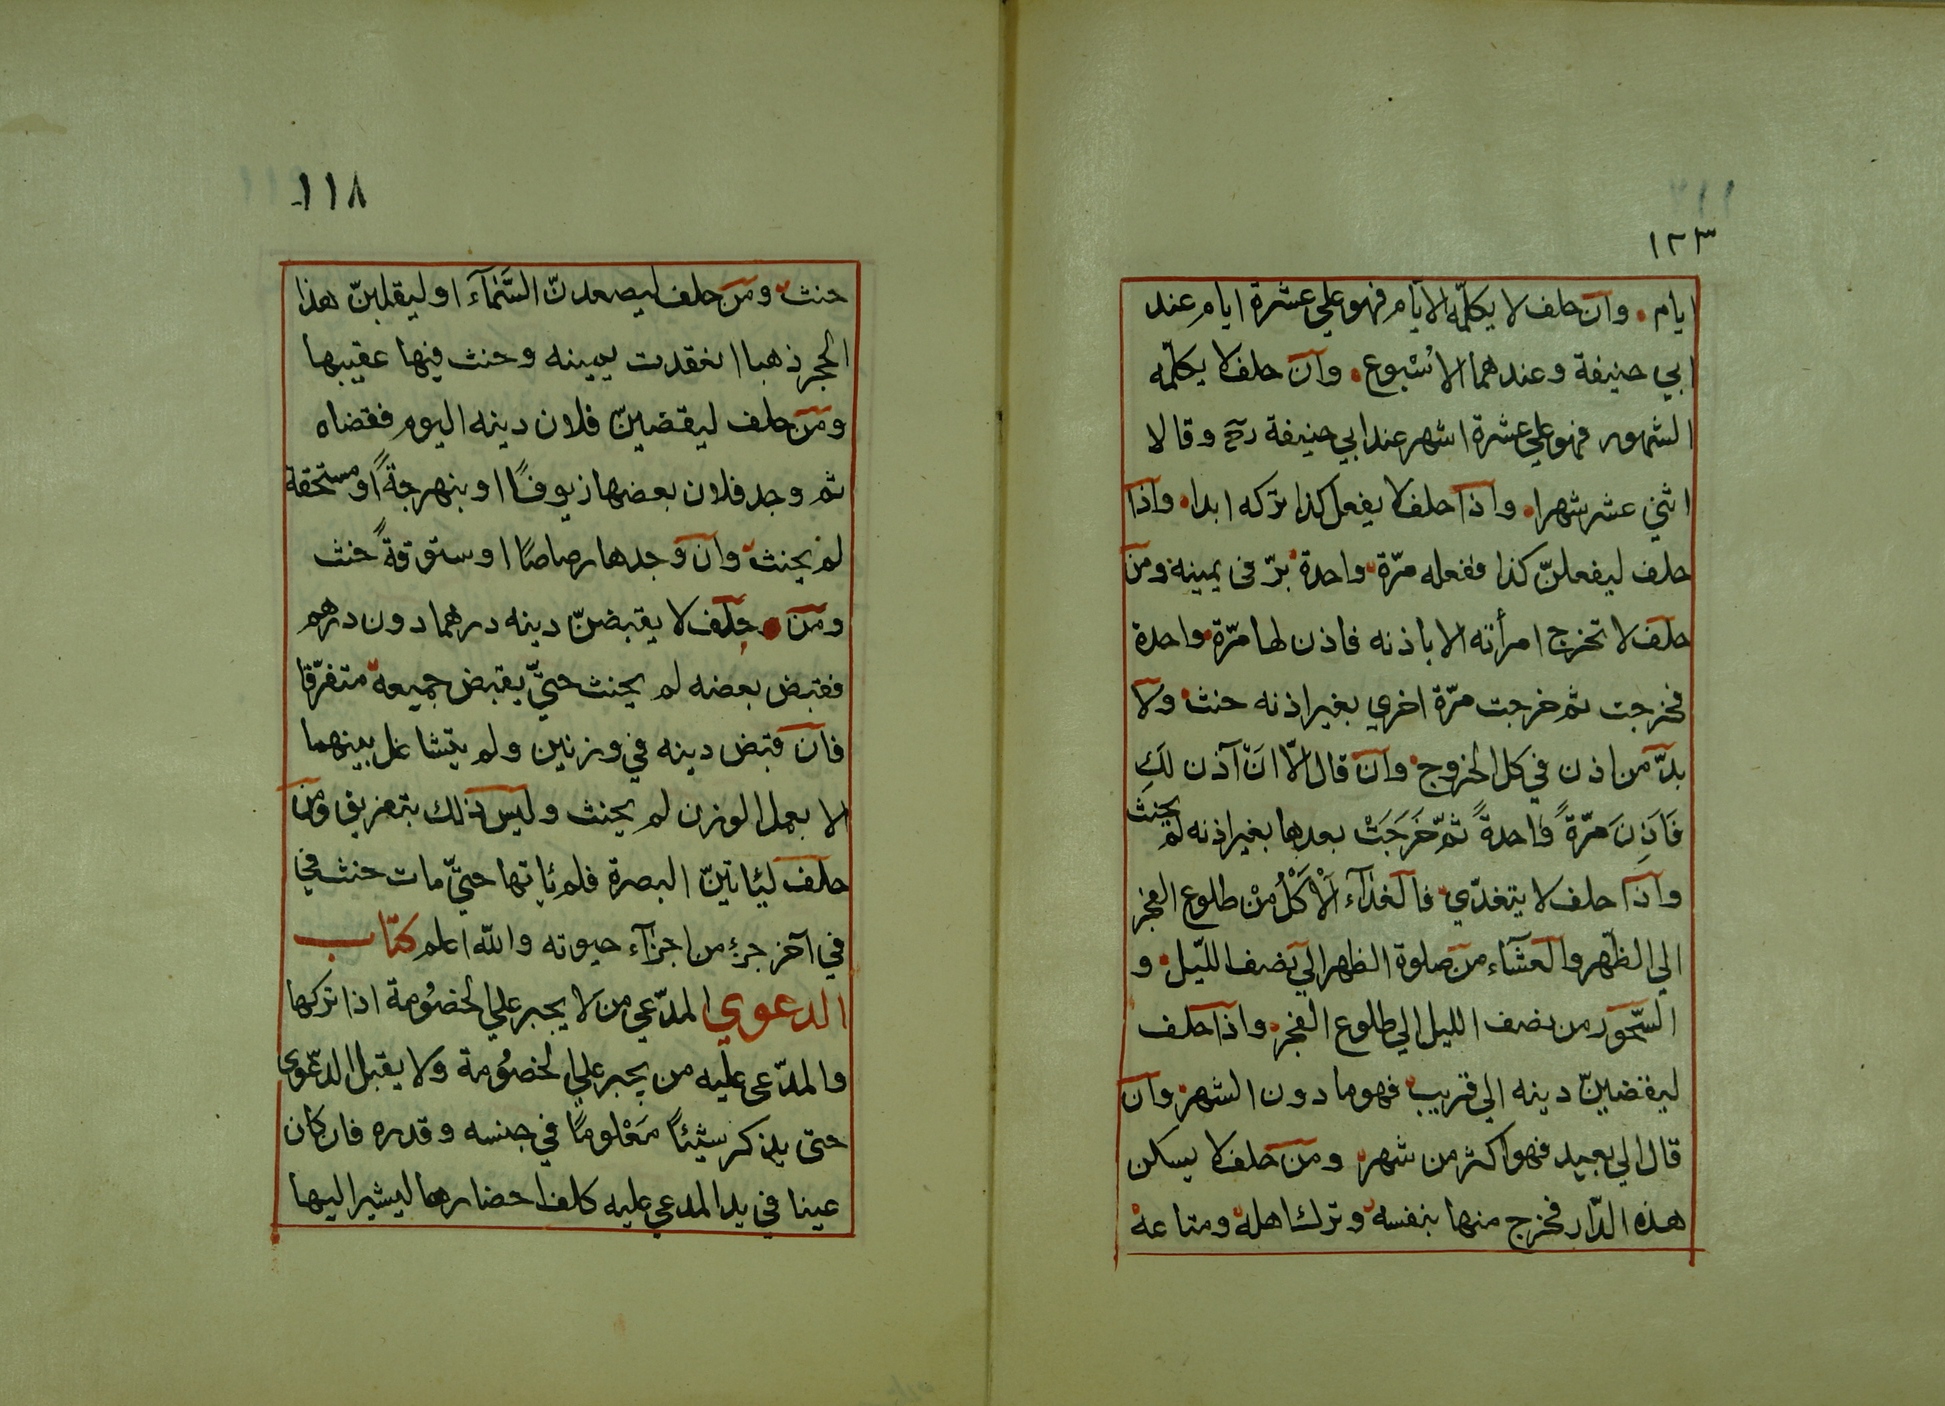 ١٢٣
ايام وان حلف لا يكلّمه الايّام فهو علي عشرة ايام عند
ابي حنيفة وعندهما الاُسْبوع وان حلف لا يكلّمه
الشهور فهو علي عشرة اشهر عند ابي حنيفة رح وقالا
اثني عشر شهرا واذا حلف لا يفعل كذا تركه ابدا واذا
حلف ليفعلنّ كذا ففعله مرّة واحدة برّ فى يمينه ومن
حلف لا تخرج امرأته الا باذنه فاذن لها مرّة واحدة
فخرجت ثم خرجت مرّة اخري بغير اذنه حنث ولا
بدّ من اذن في كل الخروج وان قال الّا انْ آذن لكِ
فَاَذِنَ مرّةً واحدةً ثمّ خَرَجَتْ بعدها بغير اذنه لم يحنث
واذا حلف لا يتغدّي فالغدآء اَلْاَكْلُ مِنْ طلوع الفجر
الي الظّهر والعشآء من صلوة الظهر الي نصف اللّيل و
السّحور من نصف الليل الي طلوع الفجر واذا حلف
ليقضينّ دينه الي قريب فهو ما دون الشهر وان
قال الي بعيد فهو اكثر من شهر ومن حلف لا يسكن
هذه الدّار فخرج منها بنفسه وترك اهله ومتاعه
١١٨
حنث ومن حلف ليصعدنّ السَّمآء او ليقلبنّ هذا
الحجر ذهبا انعقدت يمينه وحنث فيها عقيبها
ومن حلف ليقضينّ فلان دينه اليوم فقضاه
ثم وجد فلان بعضها زيوفًا او بنهرجةً او مستحقة
لم يحنث وان وجدها رصاصًا او ستوقةً حنث
ومن حلف لا يقبضنّ دينه درهما دون درهم
فقبض بعضه لم يحنث حتيّ يقبض جميعه متفرّقا
فان قبض دينه في وزنين ولم يتشاغل بينهما
الا بعمل الوزن لم يحنث وليس ذلك بتفريق ومن
حلف ليئاتينّ البصرة فلم يئاتها حتيّ مات حنث في
في آخر جزء من اجزآء حيوته واللّه اعلم كتاب
الدعوي المدّعي من لا يجبر علي الخصُومة اذا تركها
والمدّعى عليه من يجبر علي الخصُومة ولا يقبل الدعْوى
حتى يذكر شيئاً مَعْلومًا في جنسه وقدره فان كان
عينا في يد المدعي عليه كلف احضارها ليشير اليها